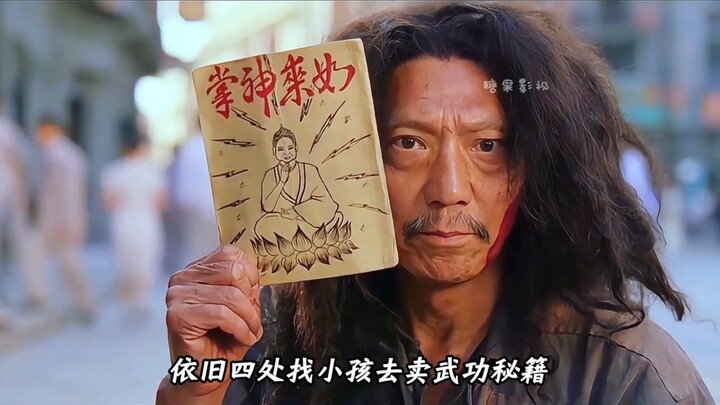 如來神掌
糖果影视
依旧四处找小孩去卖武功秘籍